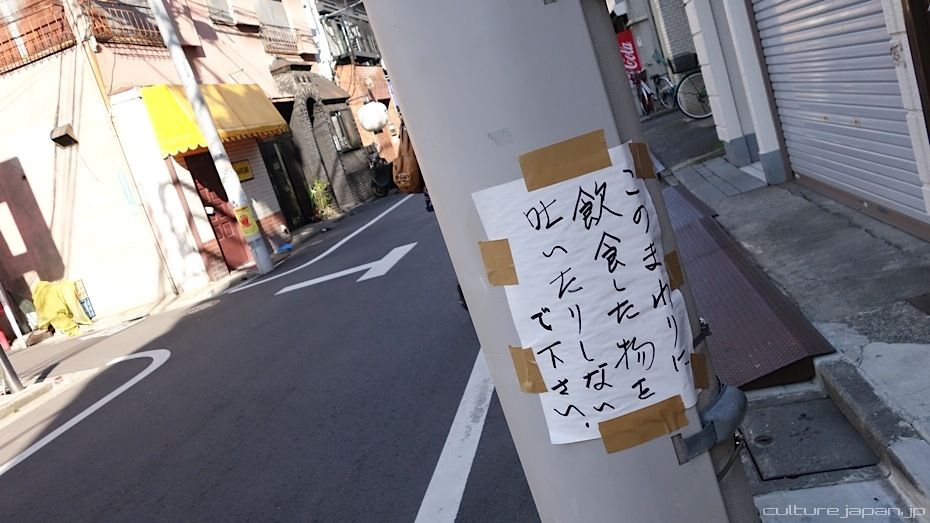 このまわりに
飲食した物を
吐いたりしない
で下さい.
Cola
culturejapan.jp